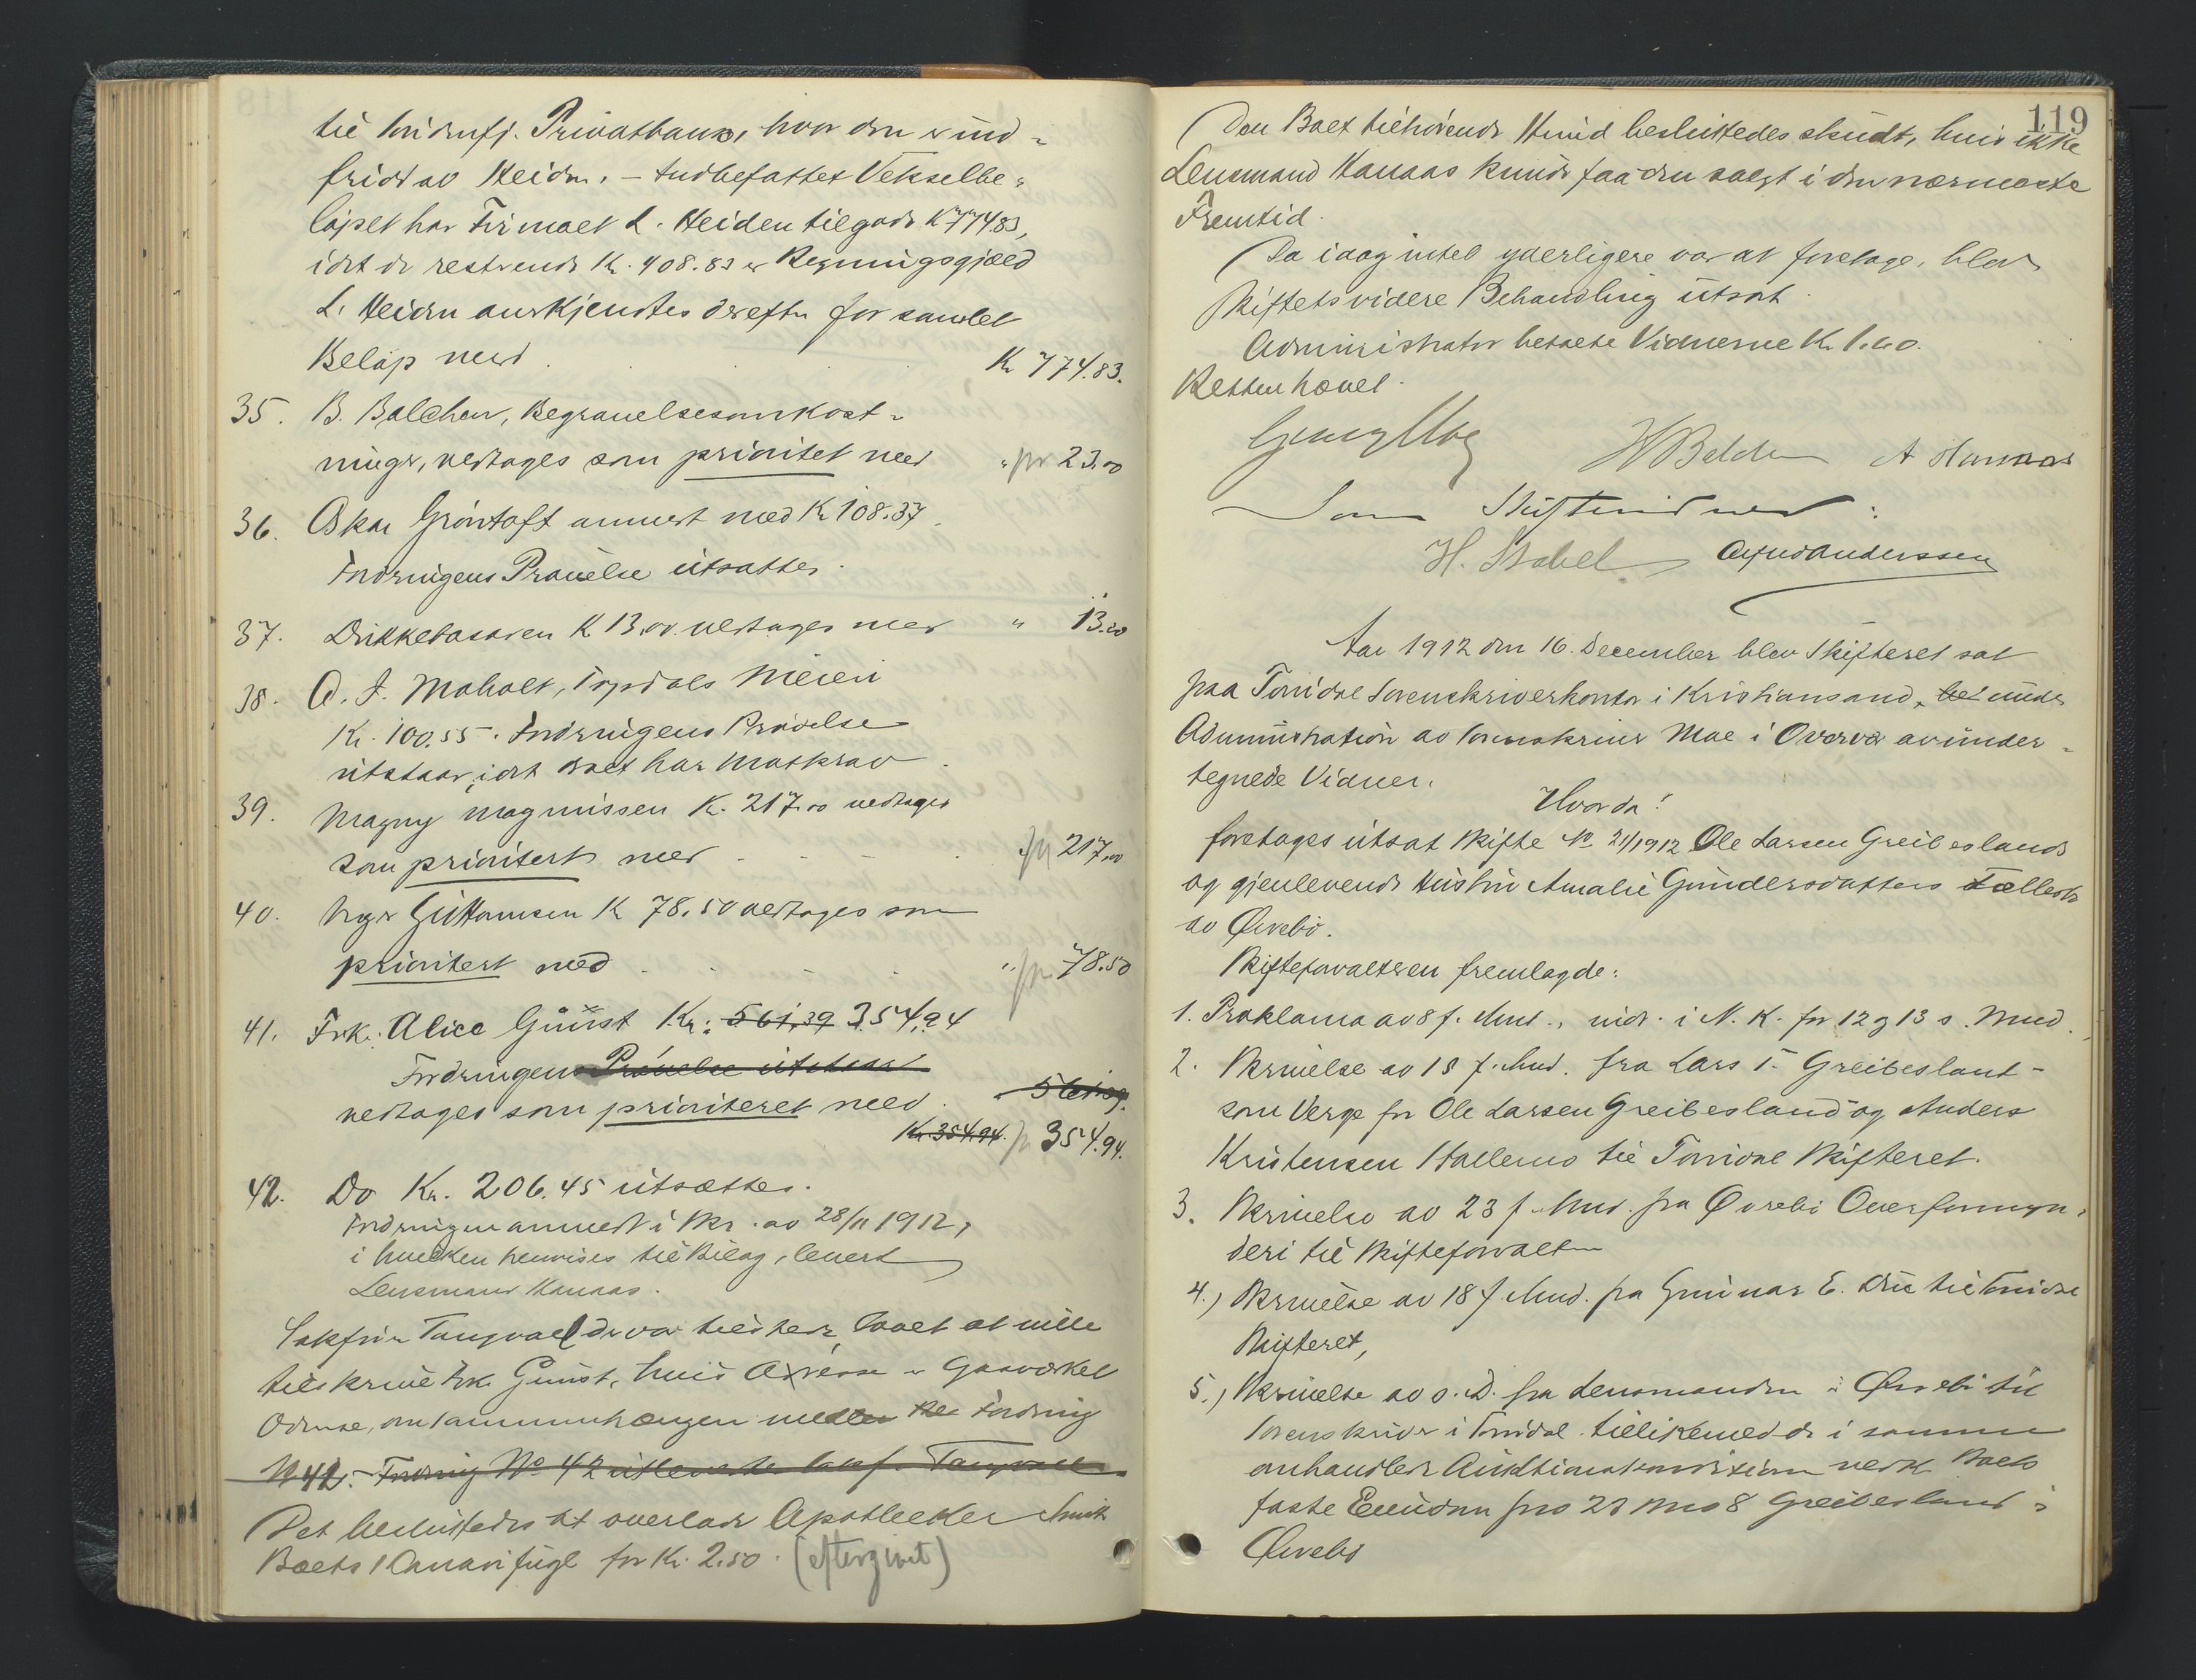 til Kridsvsj. Privatbank, hvor den er ind-
friet av Heiden. – Indbefattet Vekselbe-
løpet har Firmaet L. Heiden tilgode Kr 774.83,
idet de resterende Kr. 408.83 er Regningsgjæld
L. Heiden anerkjendtes derefter for samlet
Beløp med Kr 774.83.
35. B. Balchen, Begravelsesomkost-
ninger, vedtages som prioritet med " pr 23.00
36. Oskar Grøntoft anmeldt med Kr 108.37
Fordringens Prøvelse utsættes.
37. Drikkebasaren Kr 13.00 vedtages med " 13.00
38. O. J. Moholt, Topdals Meieri
Kr. 100.55. Fordringens Prøvelse
utstaar, idet Boet har Motkrav.
39. Magny Magnussen Kr. 217.00 vedtages
som prioritert med pr 217.00
40. Inger Guttormsen Kr 78.50 vedtages som
prioritert med " pr 78.50
41. Frk. Alice Günst Kr. 561.39 354,94
Fordringens Prøvelse utstaar
vedtages som prioriteret med 561.39.
Kr. 354.94. pr 354.94.
42. Do Kr. 206.45 utsættes.
Fordringen anmeldt i Skr. av 28/11 1912,
i hvilken henvises til Bilag, levert
Lensmand Hanaas.
Sakfører Tangvald der var tilstede lovet at ville
tilskrive Frk. Günst, hvis Adresse er Gasværket
Odense, om sammenhængen med Fordring
No 42. Fordring No 42 utleverte Sakf. Tangvald
Det besluttedes at overlade Apotheker Smith
Boets 1 Kanarifugl for Kr. 2.50. (eftergivet)
119
Den Boet tilhørende Hund besluttedes skudt, hvis ikke
Lensmand Hanaas kunde faa den solgt i den nærmeste
Fremtid.
Da idag intet yderligere var at foretage, blev
Skiftets videre Behandling utsat.
Administrator betalte Vidnerne Kr. 1.60.
Retten hævet.
Georg Moe H Balchen A Hanaas
Som Skiftevidner:
H. Stabel Anderssen
Aar 1912 den 16. December blev Skifteret sat
paa Torridal Sorenskriverkontor i Kristiansand, under
Administration av Sorenskriver Moe i Overvær av under-
tegnede Vidner.
Hvorda!
foretages utsat Skifte No 21/1912 Ole Larsen Greibeslands
og gjenlevende Hustru Amalie Gundersdatters Fællesbo
av Øvrebø.
Skifteforvalteren fremlagde:
1. Proklama av 8 f. Mnd., indr. i N. K. for 12 og 13 s. Mnd.
2. Skrivelse av 18 f. Mnd. fra Lars T. Greibesland -
som Verge for Ole Larsen Greibesland og Anders
Kristensen Stallemo til Torridal Skifteret.
3. Skrivelse av 23 f. Mnd. fra Øvrebø Overformyn-
deri til Skifteforvalter
4.) Skrivelse av 18 f. Mnd. fra Gunnar E. Drie til Torridal
Skifteret,
5.) Skrivelse av s. D. fra Lensmanden i Øvrebø til
Sorenskriver i Torridal tillikemed de i samme
omhandlede Auktionskonditioner vedk. Boets
faste Eiendom gno 23 bno 8 Greibesland i
Øvrebø